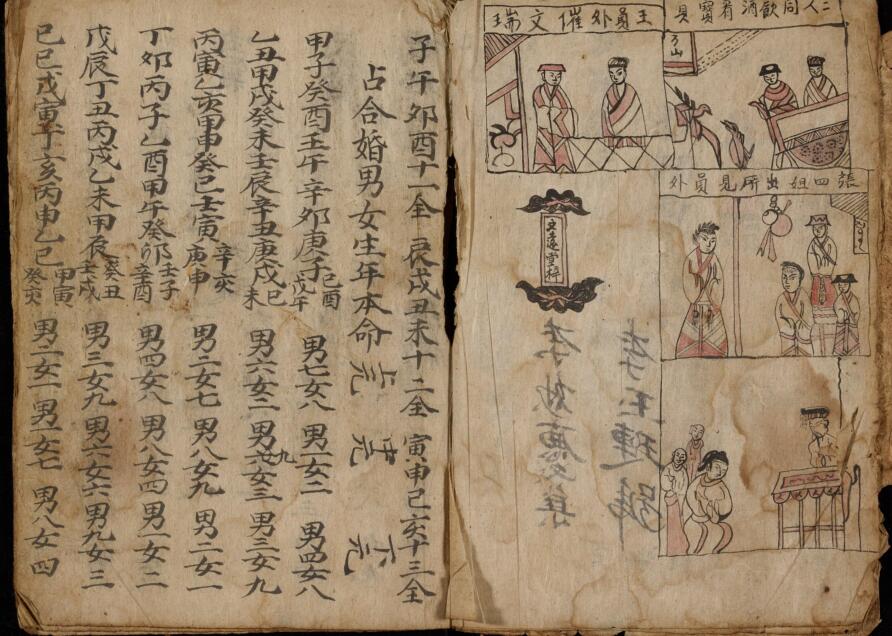 二人同飲酒看寶貝
王員外催文瑞
張四姐出所見員外
子午卯酉十一全 辰戌丑未十二全 寅申巳亥十三全
占合婚男女生年本命 上元 中元 下元
甲子癸酉壬午辛卯庚子己酉戊午 男七女八 男一女二 男四女八
乙丑甲戌癸未壬辰辛丑庚戌己未 男六女二 男九女三 男三女九
丙寅乙亥甲申癸巳壬寅辛亥庚申 男二女七 男八女九 男二女一
丁卯丙子乙酉甲午癸卯壬子辛酉 男四女八 男八女四 男一女二
戊辰丁丑丙戌乙未甲辰癸丑壬戌 男三女九 男六女六 男九女三
己巳戊寅丁亥丙申乙巳甲寅癸亥 男二女一 男一女七 男八女四